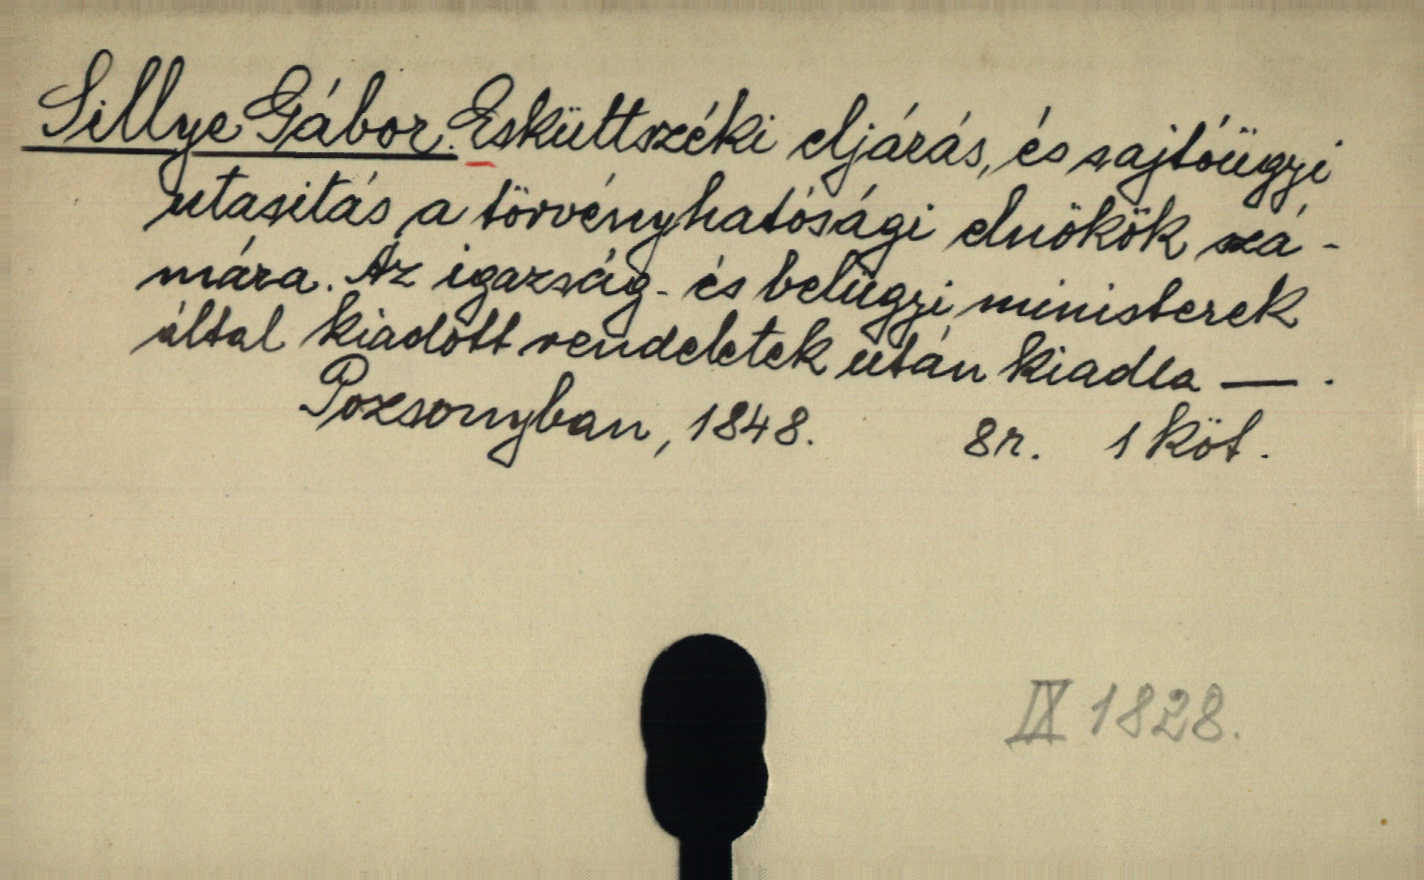 Sillye Gábor. Esküttszéki eljárás, és sajtóügyi
utasitás a törvényhatósági elnökök szá-
mára. Az igazság- és belügyi ministerek
által kiadott rendeletek után kiadta —.
Pozsonyban, 1848. 8r. 1 köt.
IX 1828.